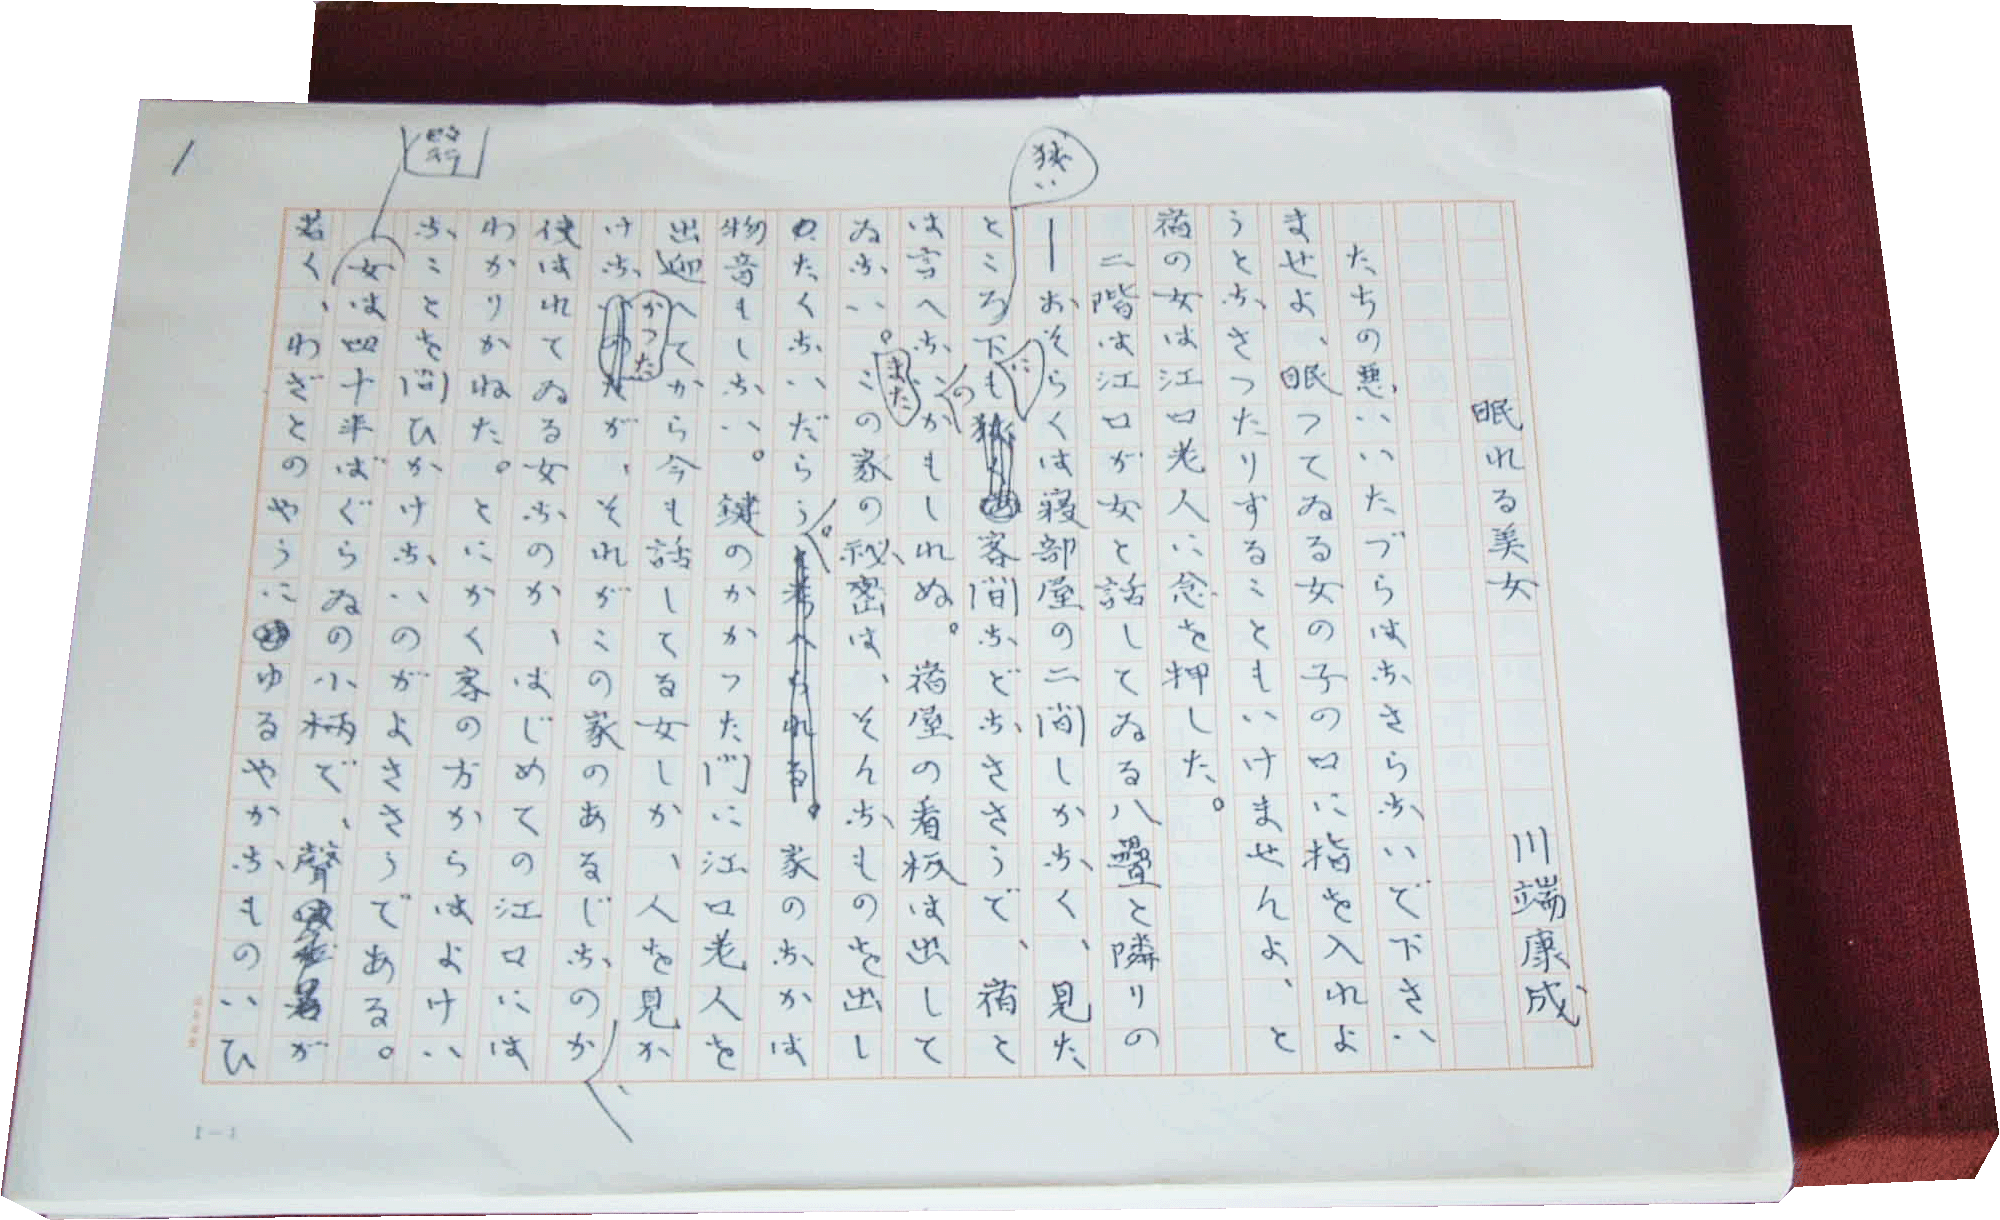 眠れる美女
川端康成
たちの悪いいたづらはなさらないで下さい
ませよ、眠つてゐる女の子の口に指を入れよ
うとなさつたりすることもいけませんよ、と
宿の女は江口老人に念を押した。
二階は江口が女と話してゐる八疊と隣りの
―おそらくは寝部屋の二間しかなく、見た
狭い
ところ下もに客間などなささうで、宿と
の
は言へないかもしれぬ。宿屋の看板は出して
また
ゐない。この家の秘密は、そんなものを出し
たくないだらう。と考へられる。家のなかは
物音もしない。鍵のかかつた門に江口老人を
出迎へてから今も話してる女しか、人を見か
かつた
けないのだが、それがこの家のあるじなのか、
使はれてゐる女なのか、はじめての江口には
わかりかねた。とにかく客の方からはよけい
なことを問ひかけないのがよささうである。
改行
女は四十半ばぐらゐの小柄で、聲が
若く、わざとのやうにゆるやかなものいひ
1
[一]